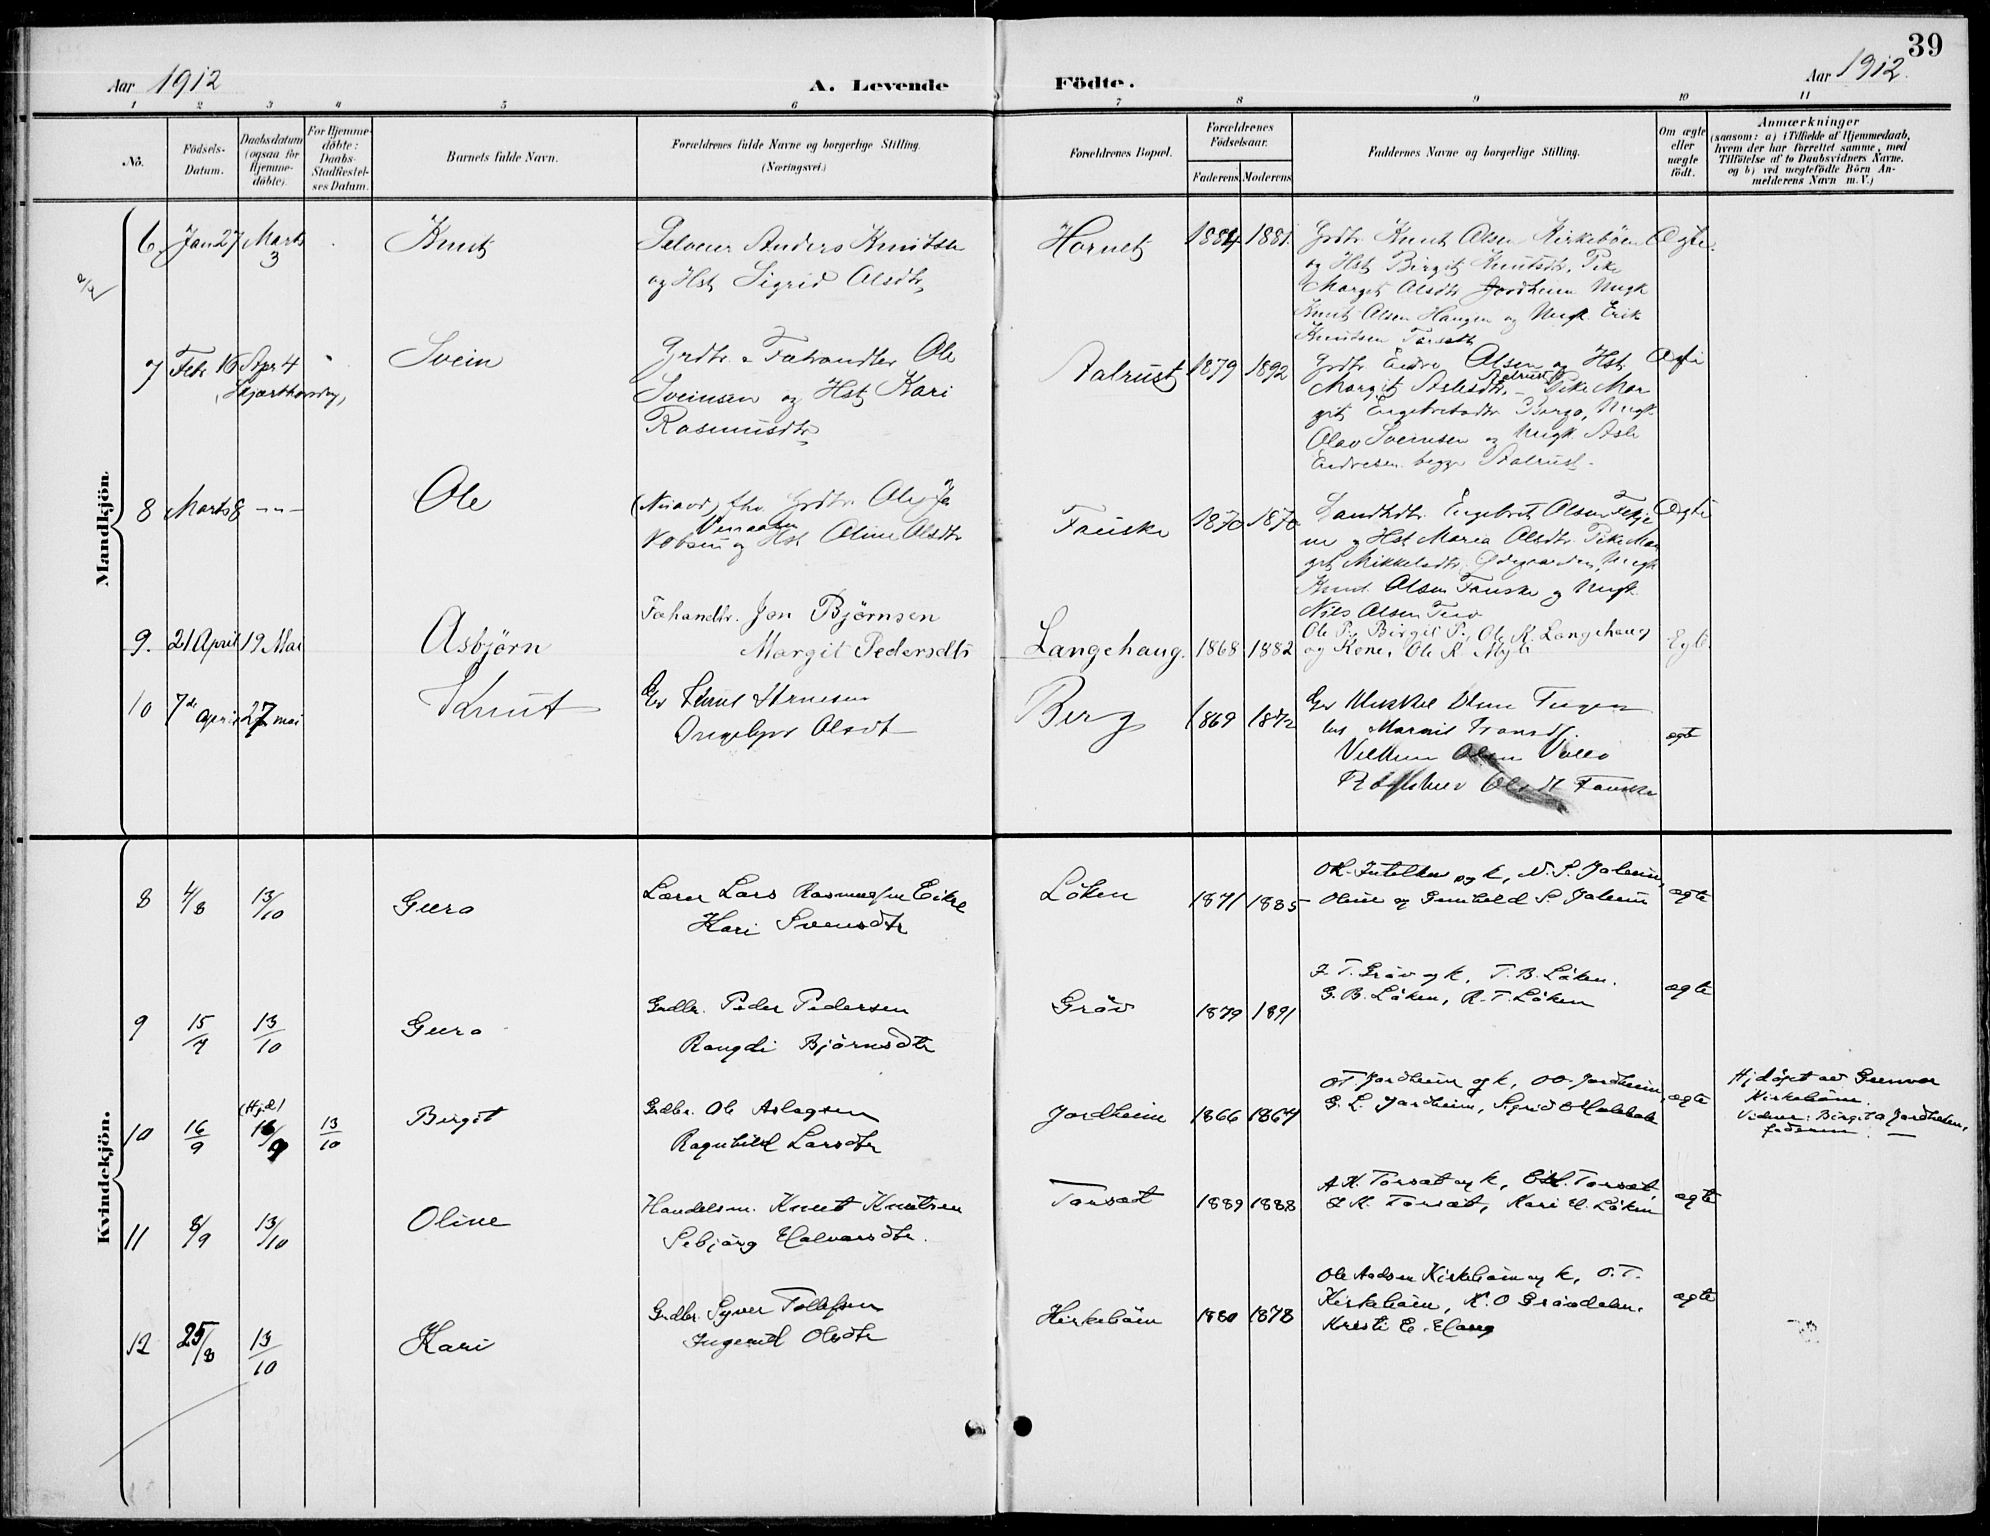 39
Aar 1912
A. Levende Födte.
Aar 1912.
1 2 3 4 5 6 7 8 9 10 11
No.
Födsels-
Datum.
Daabsdatum
(ogsaa for
Hjemme-
döbte).
For Hjemme-
döbte:
Daabs-
Stadfæstel-
ses Datum.
Barnets fulde Navn.
Forældrenes fulde Navne og borgerlige Stilling.
(Næringsvei.)
Forældrenes Bopæl.
Forældrenes
Födselsaar.
Faderens Moderens
Faddernes Navne og borgerlige Stilling.
Om ægte
eller
uægte
födt.
Anmærkninger
(saasom: a) i Tilfælde af Hjemmedaab,
hvem der har forrettet samme, med
Tilföielse af to Daabsvidners Navne.
og b) ved uægtefödte Börn An-
melderens Navn m. V.)
Mandkjön.
6 Jan 27 Marts
3
Knut
Anders Knutsen
og Hst Sigrid Olsdtr
Hornet
1884 1881.
Grdbr Knut Olsen Kirkebøen
og Hst Birgit Knutsdtr. Pike
Margit Olsdtr Jordheim Ungk
Knut Olsen Haugen og Ungk. Erik
Knutsen Torset
Ægte.
7 Febr 16 Apr 4
Svein
Grdbr. Ole
Sveinsen og Hst Kari
Rasmusdtr
Aalrust
1879 1892
Grdbr Endre Olsen og Hst
Margit Aslesdtr. Aalrust Pike Mar
git Engebretsdtr Ungk.
Olav Sveinsen og Ungk Asle
Endresen begge Aalrust.
8 Marts 8 -"-
Ole
Grdbr. Ole
og Hst Oline Olsdtr
Fauske
1870 1870
Engebret Olsen
og Hst Maria Olsdtr. Pike Mar
git Mikkelsdtr. Ødegaarden, Ungk
Knut Olsen Fauske og Ungk.
Nils Olsen
Ægte
9. 21 April 19 Mai
Asbjørn
Fæhandlr. Jon Bjørnsen
Margit Pedersdtr
Langehaug.
1868 1882
Ole P., Birgit P., Ole K. Langehaug
og Kone, Ole K. Myli
10 7de April 27 mai
Knut
Knut
Ingebjør Olsdt
Berg
1869 1872
Olsen
Margit
Vilhem Olsen
Olsdt Fauske
ægte
Kvindekjön.
8 4/8 13/10
Guro
Lærer Lars Rasmussen Eikre
Kari Svensdtr
Löken
1871 1885
og k, N. S.
Oline og Gunhild S.
ægte
9 15/7 13/10
Guro
Grdbr. Peder Pedersen
Rangdi Björnsdtr
Gröv
1879 1891
J. T. Gröv og k, T. B. Löken.
G. B. Löken, R. T. Löken
ægte
10 16/9 (Hjd) 16/9 13/10
Birgit
Grdbr. Ole Aslagsen
Ragnhild Larsdtr
Jordheim
1866 1867
O T. Jordheim og k, O O. Jordheim,
G. L. Jordheim, Sigrid
ægte
Hjdöpt av Gunvor
Kirkeböen.
Vidner: Birgit A Jordheim,
faderen. —
11 8/9 13/10
Oline
Handelsm. Knut Knutsen
Sebjörg Halvorsdtr.
Torsæt
1889 1888
A K. Torsæt og k, E K. Torsæt
K. Torsæt, Kari H. Löken
ægte
12 25/8 13/10
Kari
Grdbr. Syver Tollefsen
Ingerid Olsdtr
Kirkeböen
1880 1878
Ole Aadsen Kirkeböen og k, O. T.
Kirkeböen, K. O Gröndalen.
Kristi E. Haug
ægte